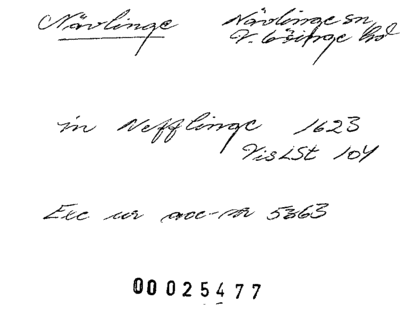 Nävlinge Nävlinge sn
V. Göinge hd
in Nefflinge 1623
VisLSt 104
Exc ur acc-nr 5363
00025477